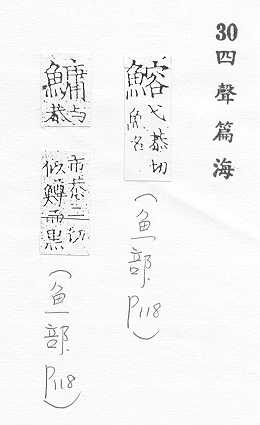 30四聲篇海
鰫弋恭切魚名(鱼部 P118)
鱅与恭市恭二切似鱒而黑(鱼部 P118)